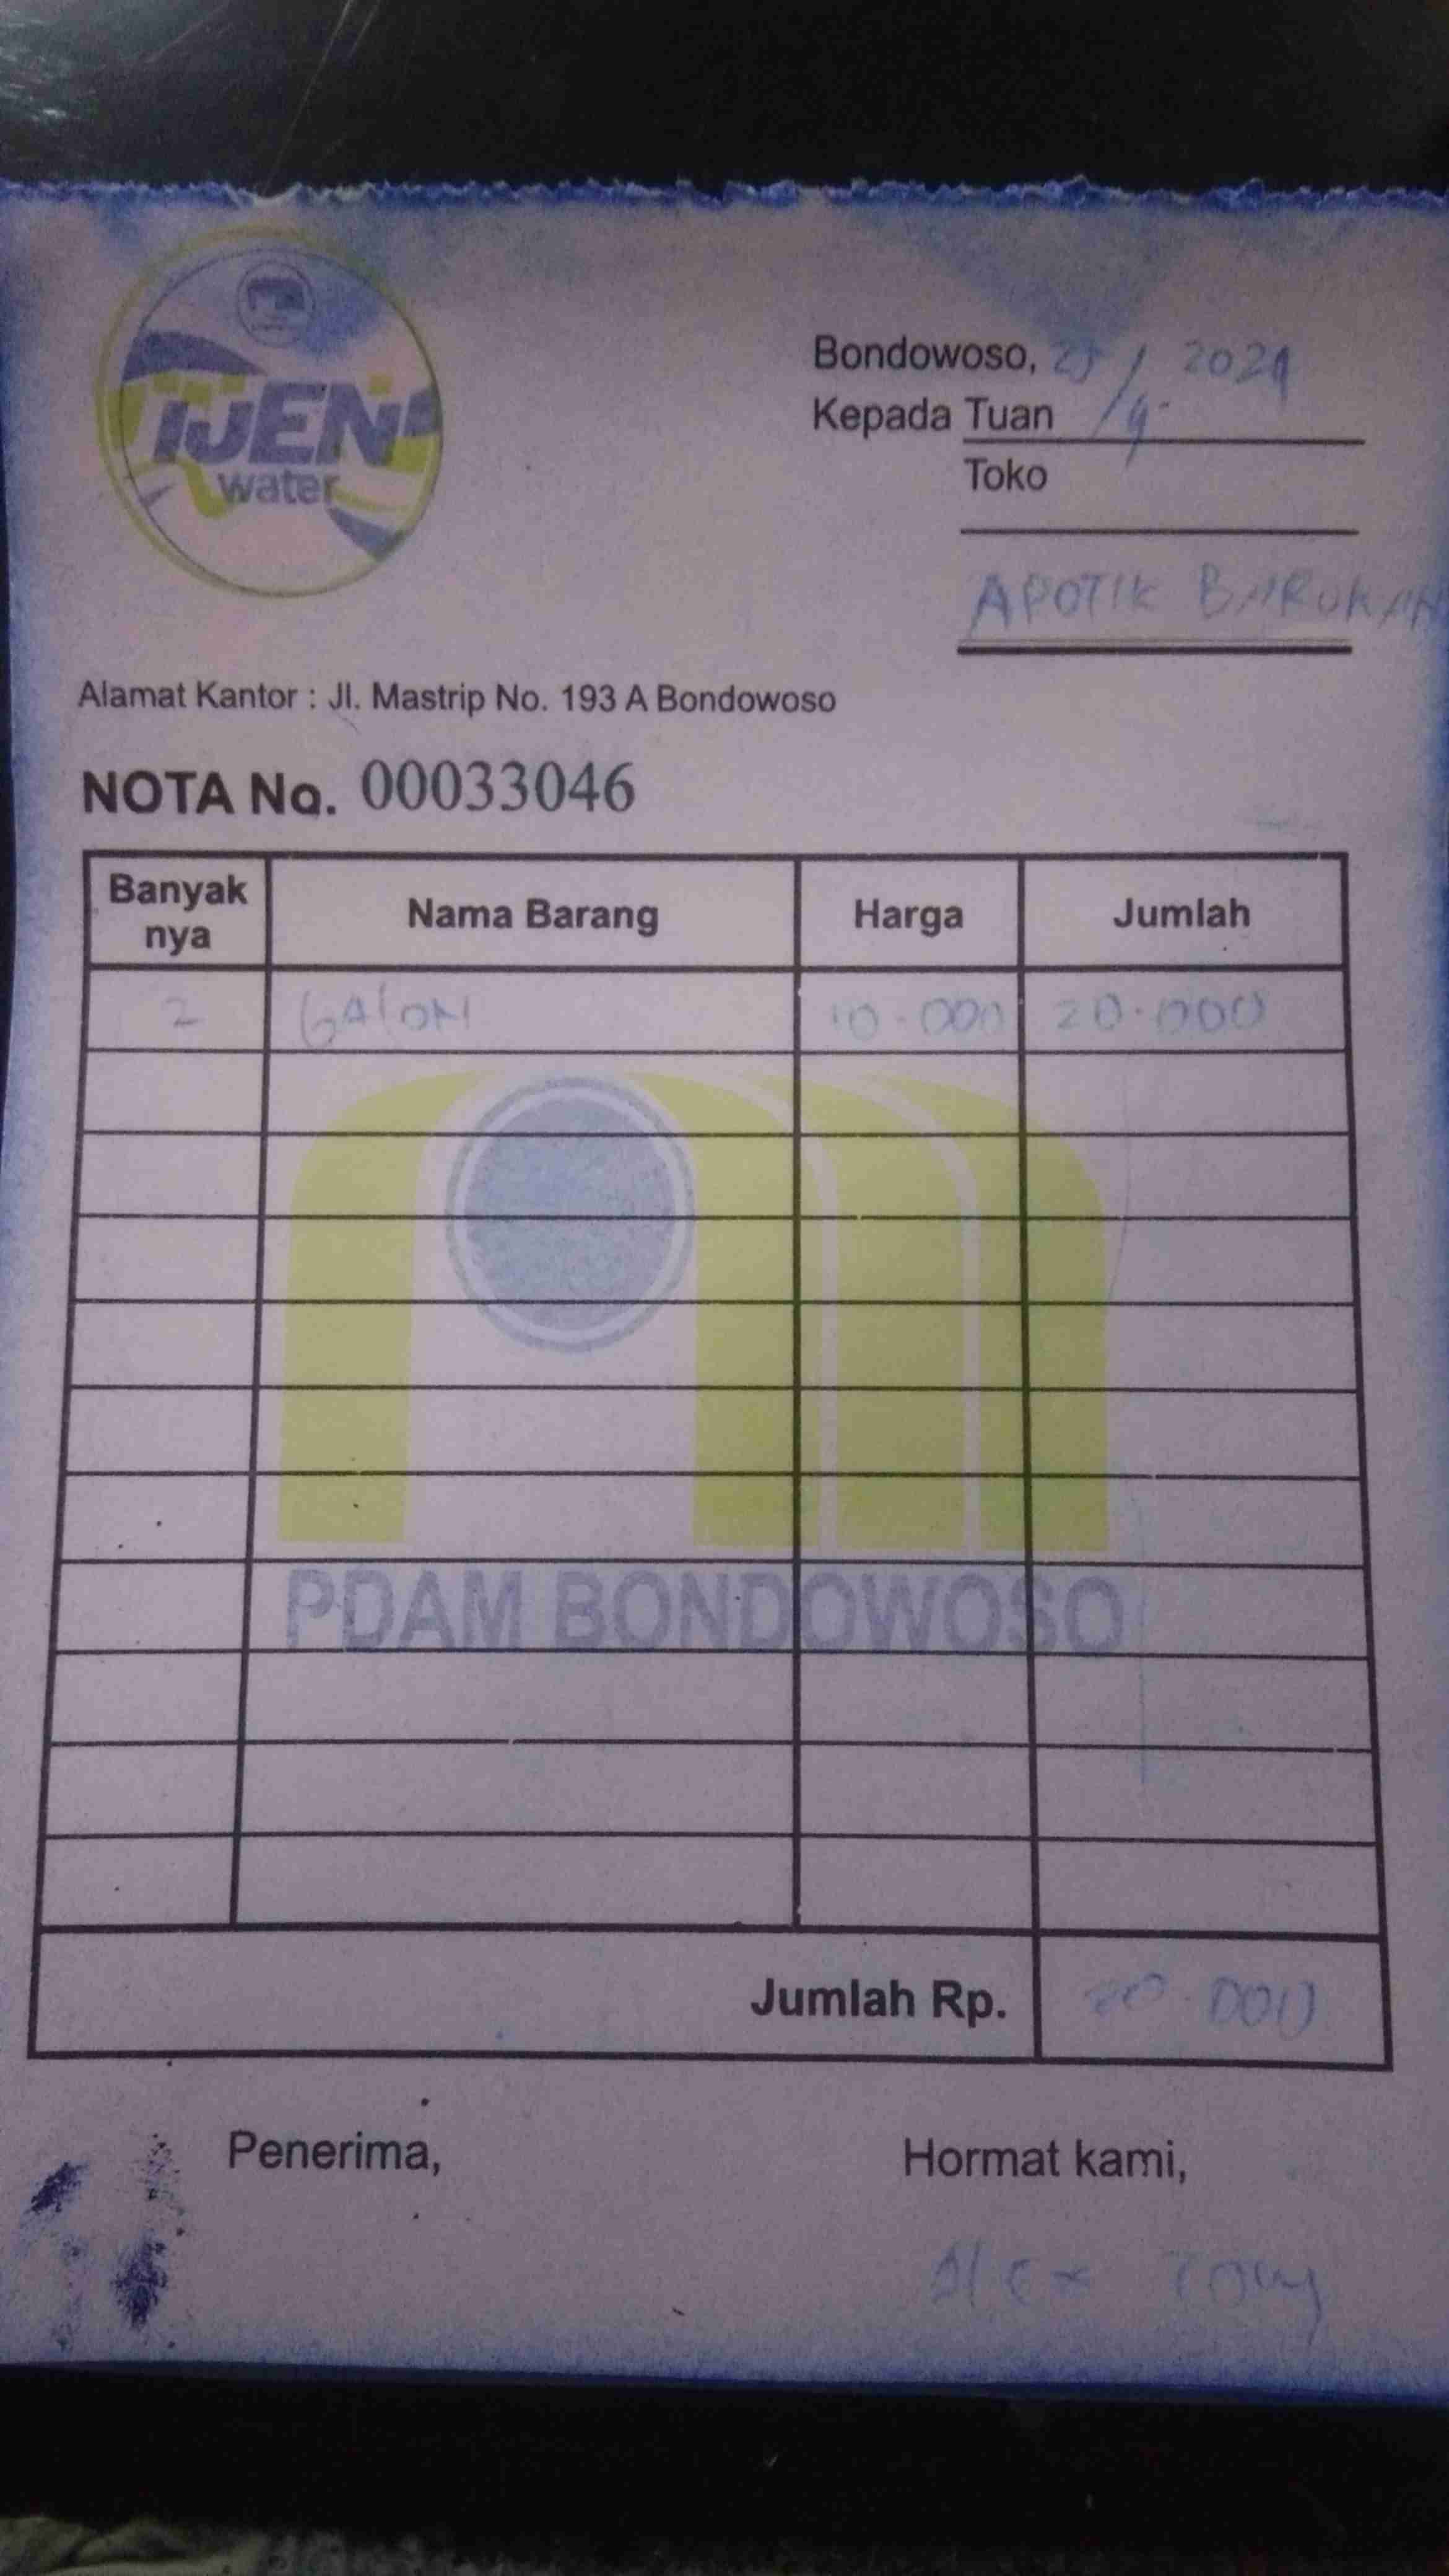 IJEN
water
Bondowoso, 25/9-2021
Kepada Tuan
Toko
APOTIK BAROKAH
Alamat Kantor : Jl. Mastrip No. 193 A Bondowoso
NOTA No. 00033046
Banyak nya Nama Barang Harga Jumlah
2 GAlON 10.000 20.000
PDAM BONDOWOSO
Jumlah Rp. 20.000
Penerima, Hormat kami,
Alex